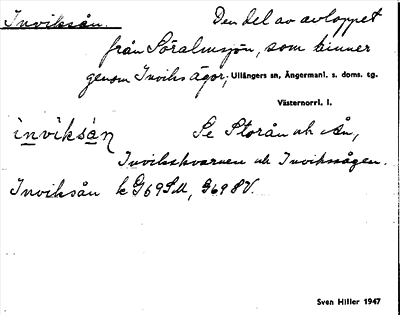 Inviksån. Den del av avloppet
från Söralmsjön, som rinner
genom Inviks ägor; Ullångers sn, Ångermanl. s. doms. tg.
Västernorrl. l.
inviksån Se Storån och Ån,
Invikskvarnen och Invikssågen.
Inviksån k G69SU, G698V.
Sven Hiller 1947